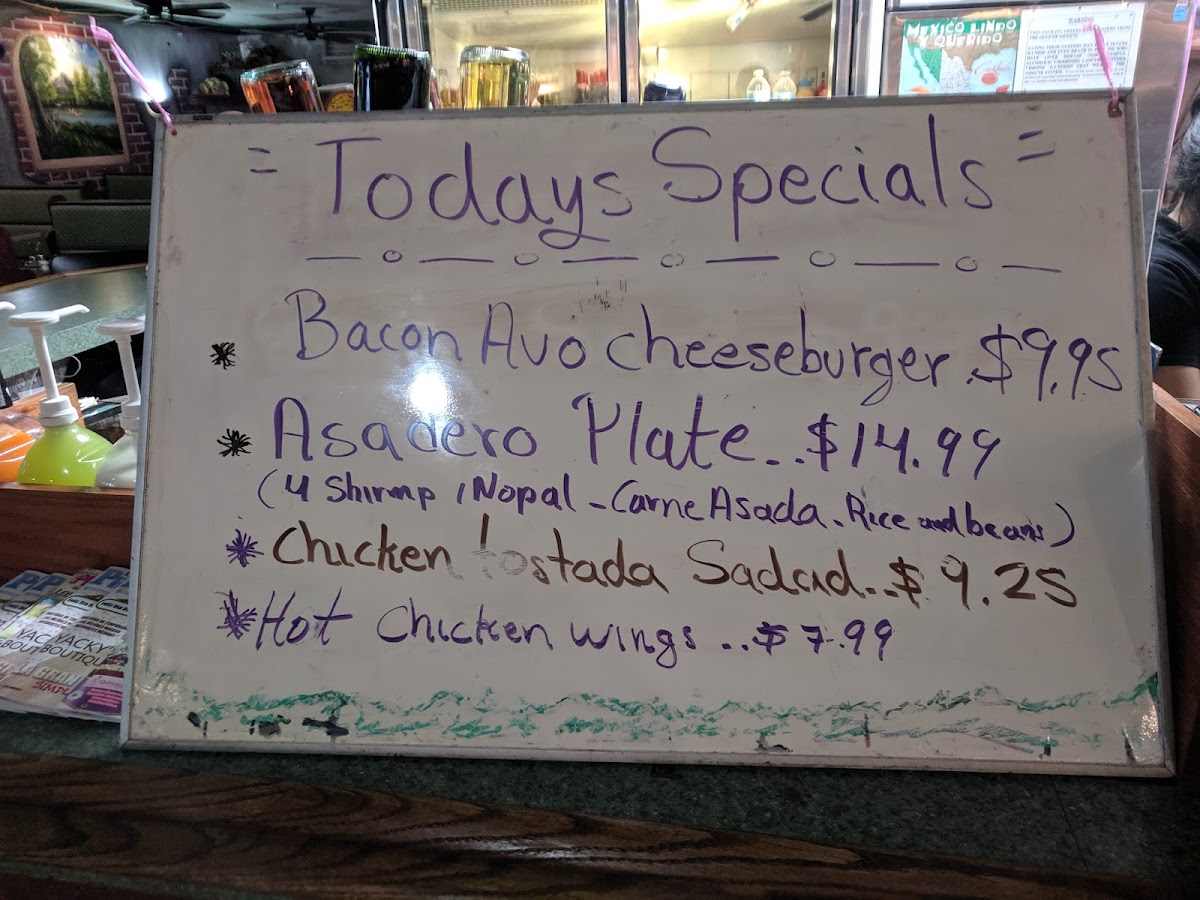 MEXICO LINDO
Y QUERIDO
WARNING
= Todays Specials =
* Bacon Avo cheeseburger.$9.95
* Asadero Plate..$14.99
(4 Shirmp, 1 Nopal - Carne Asada. Rice and beans)
* Chicken tostada Saduad..$9.25
* Hot Chicken wings..$7.99